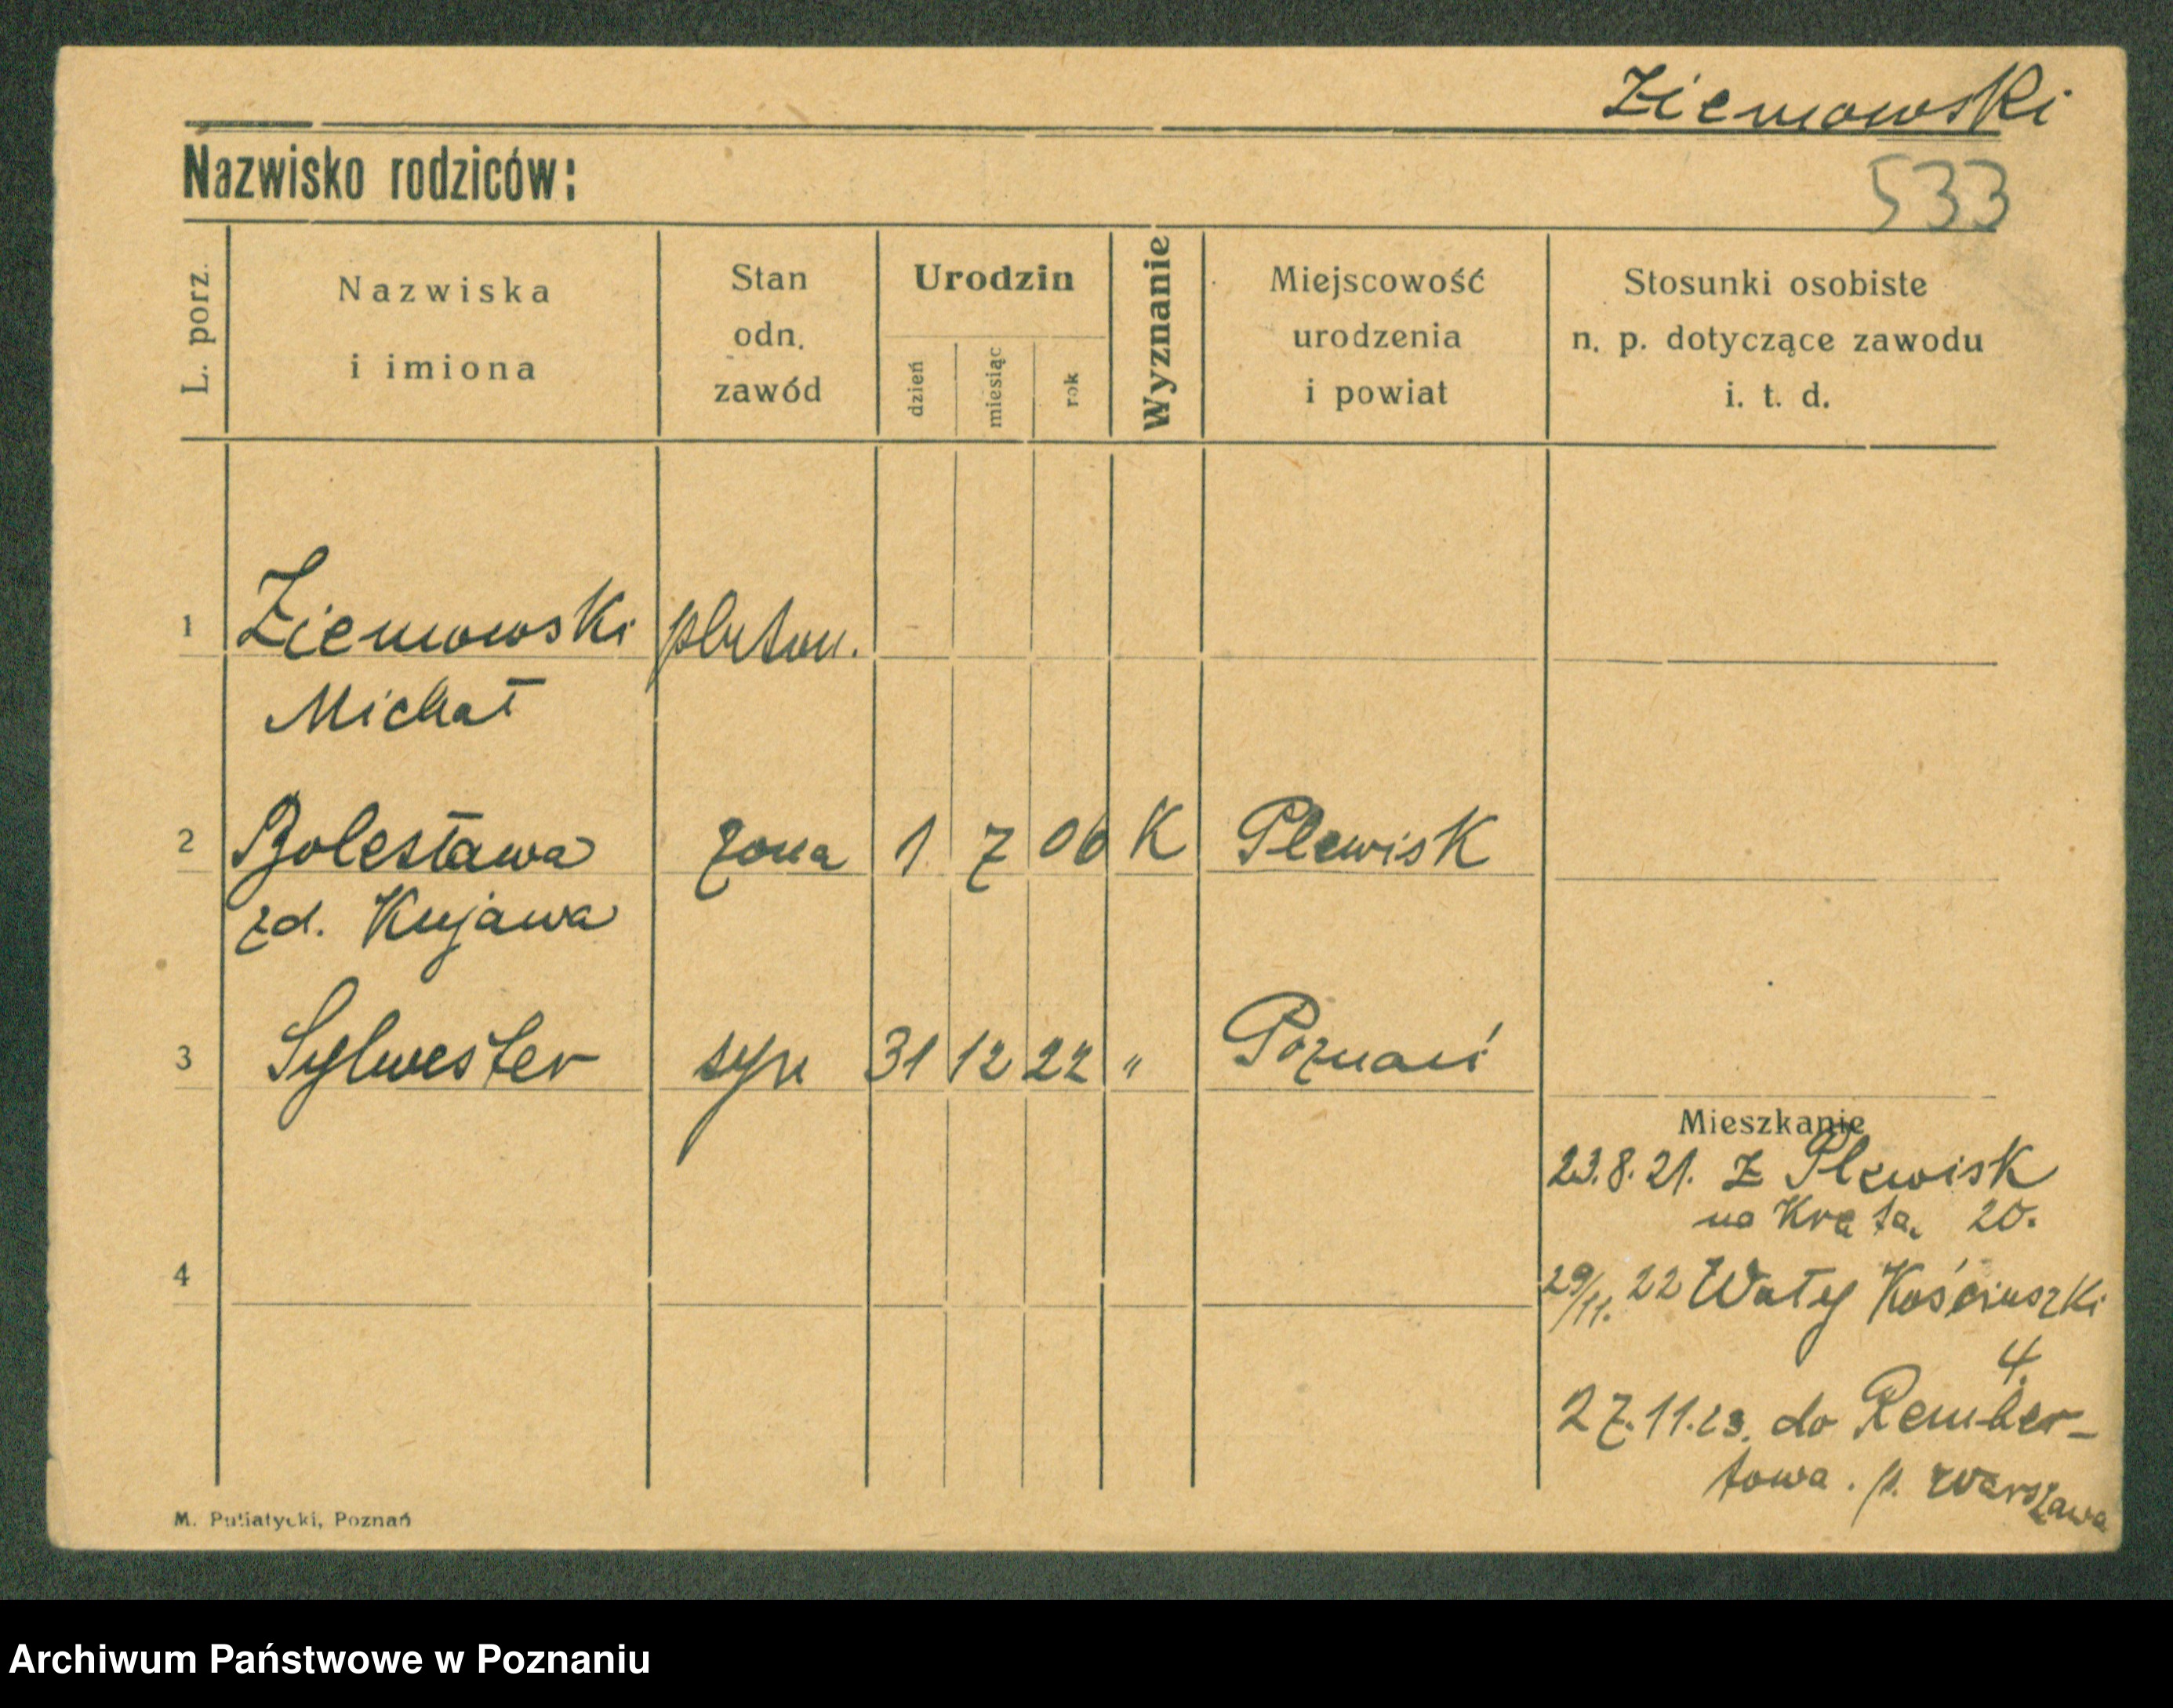 Ziemowski
Nazwisko rodziców:
533
L. porz.
Nazwiska
i imiona
Stan
odn.
zawód
Urodzin
dzień
miesiąc
rok
Wyznanie
Miejscowość
urodzenia
i powiat
Stosunki osobiste
n. p. dotyczące zawodu
i. t. d.
1 Ziemowski pluton.
Michał
2 Bolesława żona 1 7 06 K Plewisk
zd. Kujawa
3 Sylwester syn 31 12 22 " Poznań
Mieszkanie
23.8.21. Z Plewisk
na Kręta. 20.
4
29/11. 22 Wały Kościuszki
4.
27.11.23. do Rember-
towa. p. Warszawa
M. Putiatycki, Poznań
Archiwum Państwowe w Poznaniu